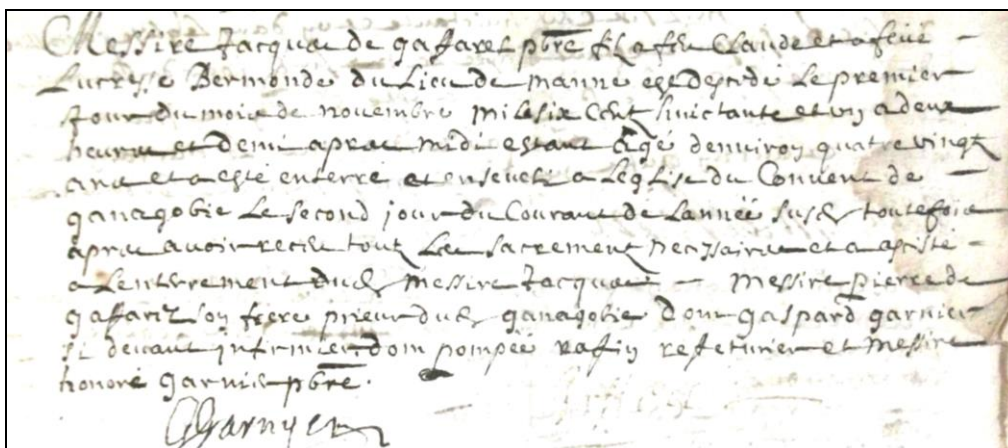 Messire Jacques de gaffarel pbre fils a feu Claude et a feue
Lucresse Bermonde du Lieu de manne est descedé Le premier
Jour du mois de novembre mil six cent huictante et un a deux
heures et demi apres midi estant Agé denviron quatre vingt
ans et a esté enterré et enseveli a Leglise du Convent de
ganagobie Le second jour du Courant de Lannée susd toutefois
apres avoir receu tout Les sacrement necessaires et a assisté
a Lenterrement dud messire Jacques messire pierre de
gaffarel son frere prieur dud ganagobie dom gaspard garnier
si devant infirmier dom pompée rafin refeturier et messire
honoré garnier pbre.
Garnyer